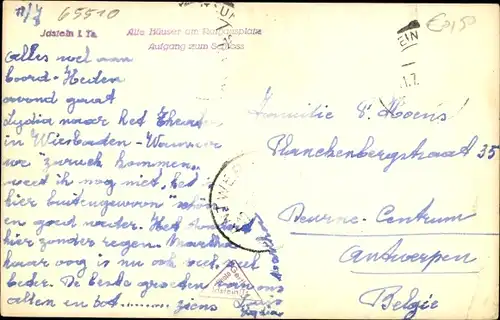 65510
€ 2,50
Idstein i. Ts.
Alte Häuser am
Aufgang zum Schloss
Alles wel aan
boord - Heden
avond gaat
Lydia naar het Theater
in Wiesbaden - Wanneer
we zuruck kommen
weet ik nog niet, het
hier buitengewoon
en goed weder. Het
hier zonder regen. Martha
haar oog is nu ook veel
beter. De beste groeten van ons
allen en tot ..... ziens
Lydia
Familie
Planckenbergstraat 35
Deurne - Centrum
Antwerpen
Belgie